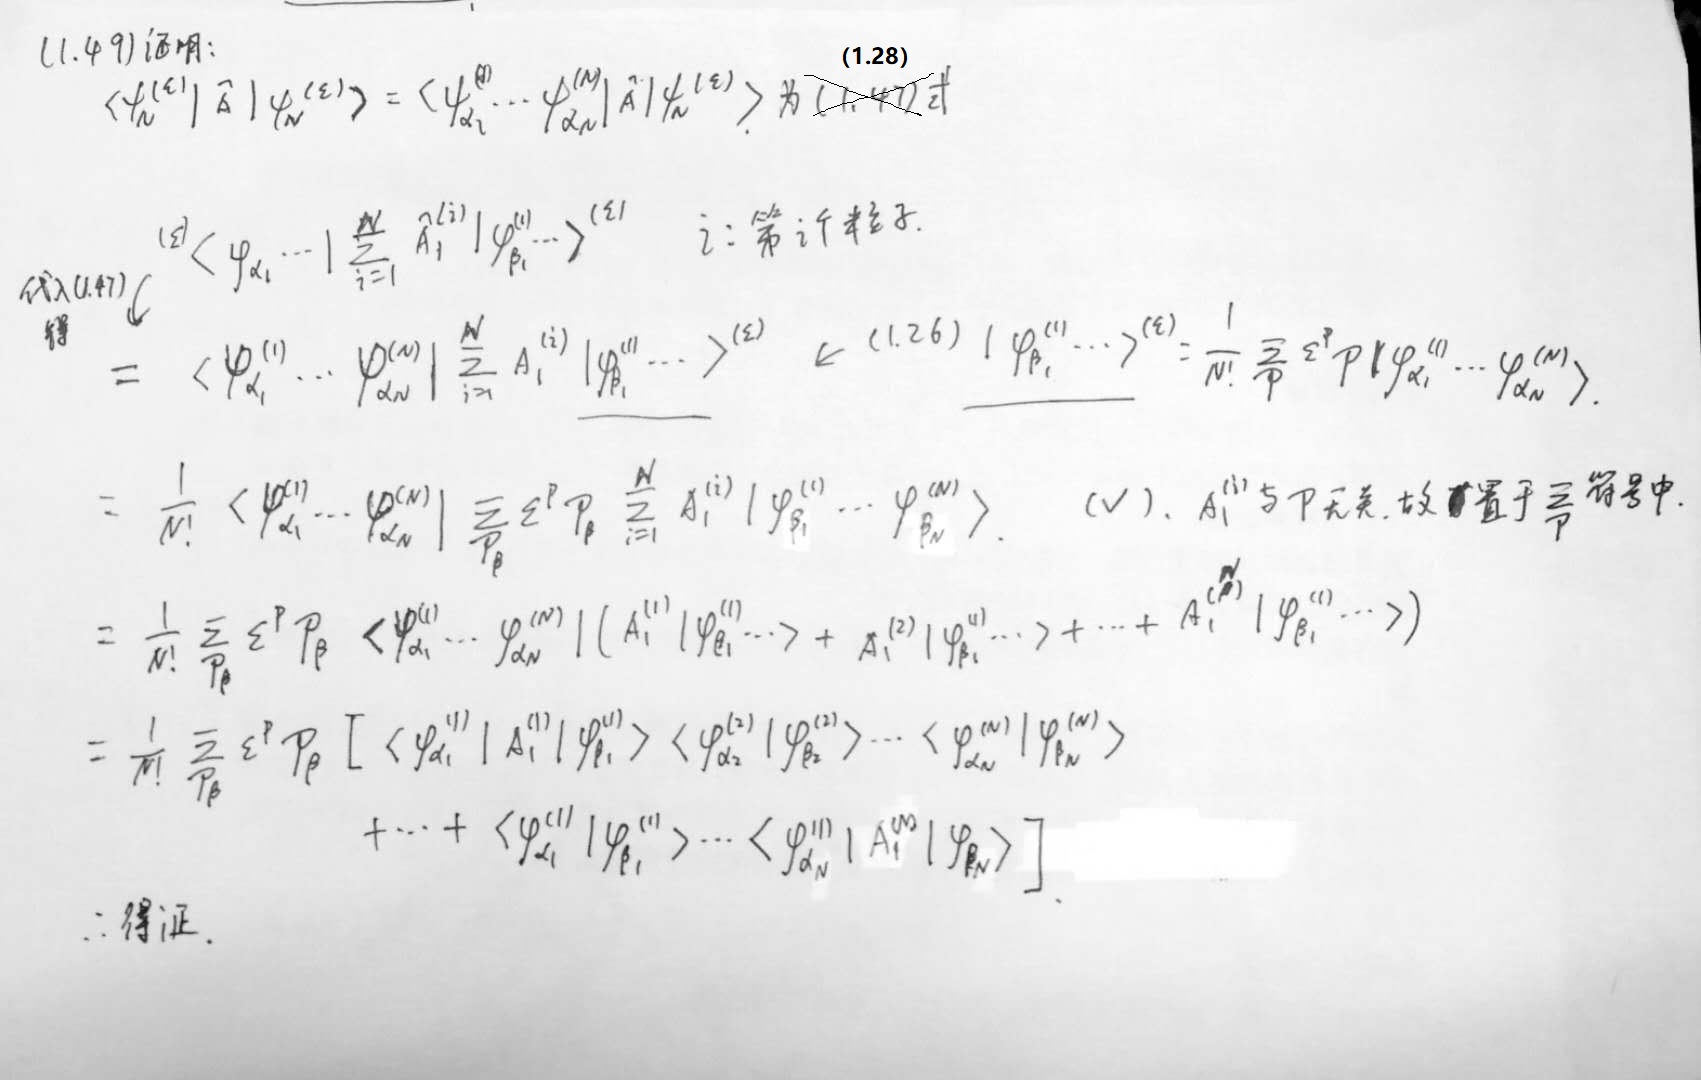 (1.49)证明:
(1.28)
⟨ψ_N^(ε)|Â|ψ_N^(ε)⟩ = ⟨ψ_α₁^(1)⋯ψ_αN^(N)|Â|ψ_N^(ε)⟩ 为(1.47)式
^(ε)⟨φ_α₁⋯|∑_{i=1}^N Â₁^(i)|φ_β₁^(1)⋯⟩^(ε) i:第i个粒子.
代入(1.47)得
= ⟨φ_α₁^(1)⋯φ_αN^(N)|∑_{i=1}^N A₁^(i)|φ_β₁^(1)⋯⟩^(ε) ← (1.26) |φ_β₁^(1)⋯⟩^(ε) = 1/N! ∑_P ε^P P|φ_α₁^(1)⋯φ_αN^(N)⟩.
= 1/N! ⟨φ_α₁^(1)⋯φ_αN^(N)|∑_{P_β} ε^P P_β ∑_{i=1}^N A₁^(i)|φ_β₁^(1)⋯φ_βN^(N)⟩. (√). A₁^(i)与P无关.故置于∑_P符号中.
= 1/N! ∑_{P_β} ε^P P_β ⟨φ_α₁^(1)⋯φ_αN^(N)|(A₁^(1)|φ_β₁^(1)⋯⟩ + A₁^(2)|φ_β₁^(1)⋯⟩ + ⋯ + A₁^(N)|φ_β₁^(1)⋯⟩)
= 1/N! ∑_{P_β} ε^P P_β [⟨φ_α₁^(1)|A₁^(1)|φ_β₁^(1)⟩⟨φ_α₂^(2)|φ_β₂^(2)⟩⋯⟨φ_αN^(N)|φ_βN^(N)⟩
+⋯+ ⟨φ_α₁^(1)|φ_β₁^(1)⟩⋯⟨φ_αN|A₁^(N)|φ_βN⟩].
∴得证.